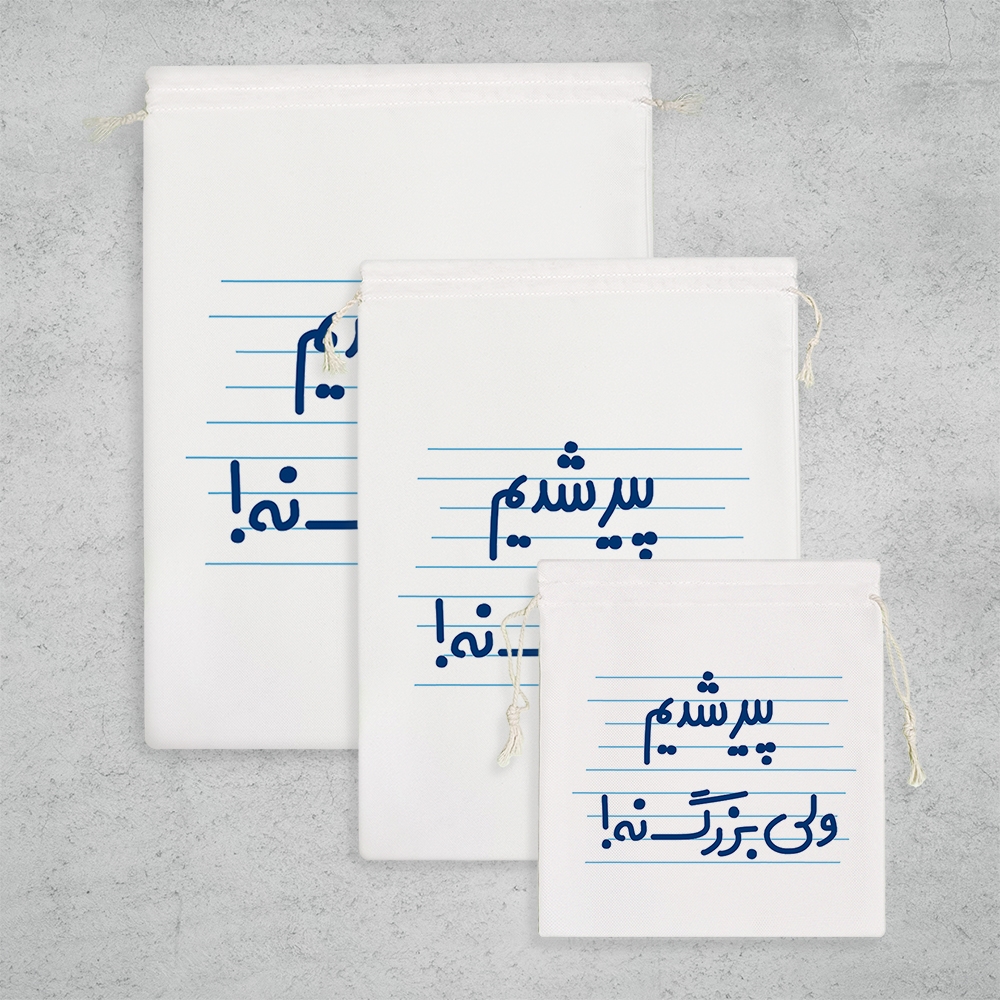 یم
نه!
پیر شدیم
نه!
پیر شدیم
ولی بزرگ نه!